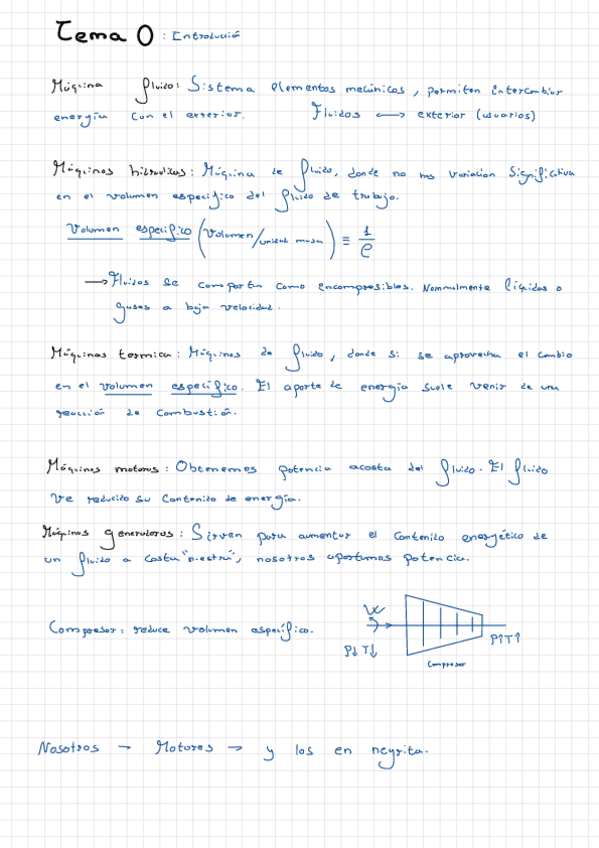 Tema 0 : Introducción
Máquina fluido: Sistema elementos mecánicos, permiten intercambiar
energía con el exterior. Fluidos ⟷ exterior (usuarios)
Máquinas hidraulicas: Máquina de fluido, donde no hay variacion significativa
en el volumen especifico del fluido de trabajo.
Volumen especifico (Volumen/unidad masa) ≡ 1/ρ
→ Fluidos se comportan como incompresibles. Normalmente líquidos o
gases a baja velocidad.
Máquinas termica: Máquinas de fluido, donde si se aprovecha el cambio
en el volumen específico. El aporte de energía suele venir de una
reacción de combustión.
Máquinas motoras: Obtenemos potencia acosta del fluido. El fluido
ve reducido su contenido de energía.
Máquinas generadoras: Sirven para aumentar el contenido energético de
un fluido a costa, nosotros aportamos potencia.
Compresor: reduce volumen específico.
W
P↓ T↓
P↑T↑
Compresor
Nosotros → Motores → y los en negrita.